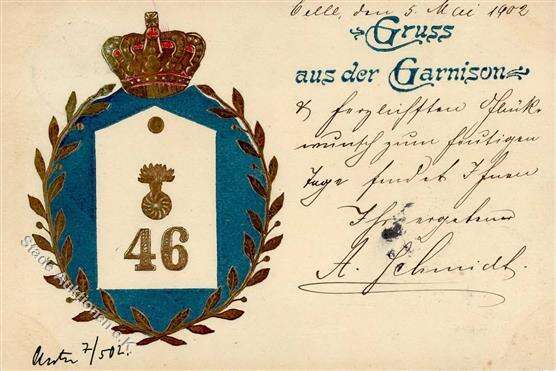 Celle, den 5. Mai 1902
Gruss
aus der Garnison
herzlichsten Glück-
wunsch zum heutigen
Tage sendet Ihnen
Ihr ergebener
A. Schmidt.
46
7/5 02.
Stade Auktionen e.K.